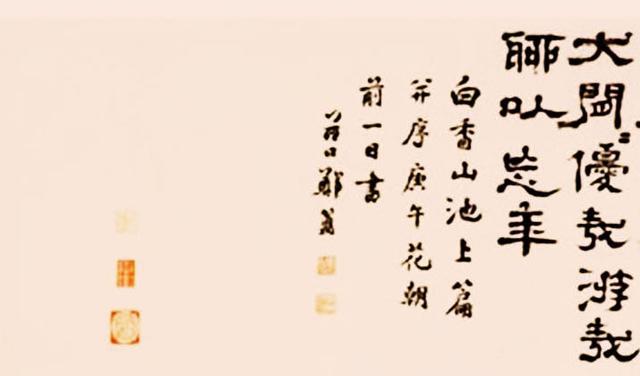 犬閒〻優哉游哉
聊以忘年
白香山池上篇
并序庚午花朝
前一日書
谷口鄭簠